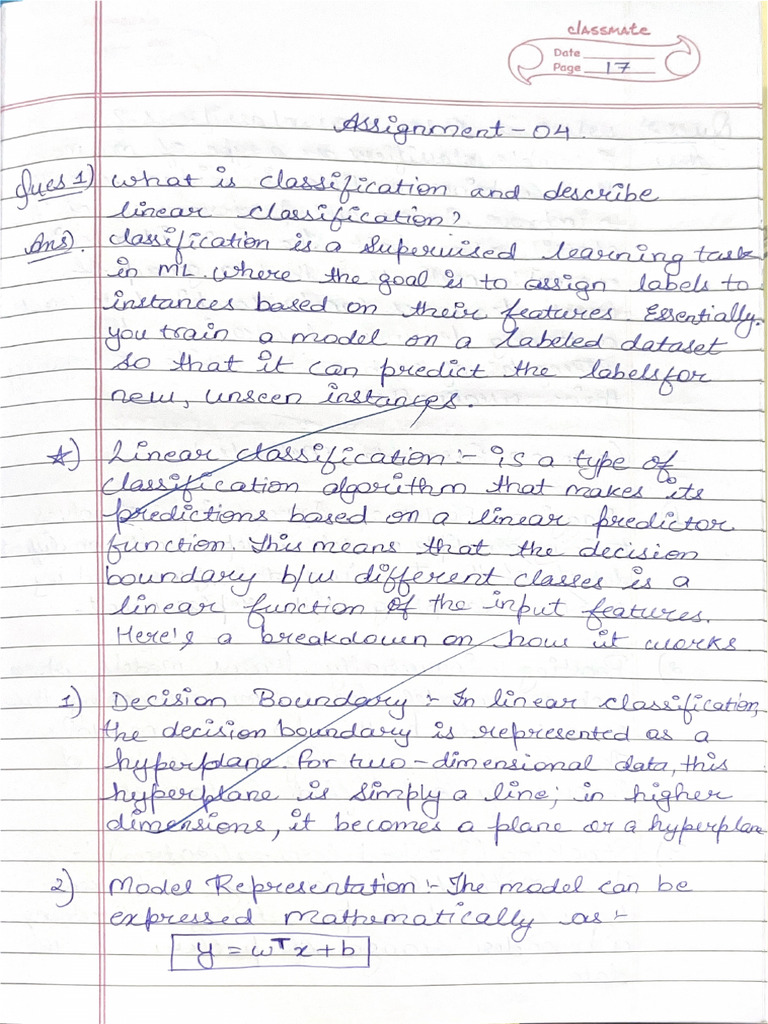 classmate
Date
Page 17
Assignment-04.
Ques 1) What is classification and describe
linear classification?
Ans). Classification is a Supervised learning task
in ML where the goal is to assign labels to
instances based on their features. Essentially,
you train a model on a labeled dataset
so that it can predict the labels for
new, unseen instances.
☆) Linear classification :- is a type of
classification algorithm that makes its
predictions based on a linear predictor
function. This means that the decision
boundary b/w different classes is a
linear function of the input features.
Here's a breakdown on how it works
1) Decision Boundary :- In linear classification,
the decision boundary is represented as a
hyperplane. For two-dimensional data, this
hyperplane is simply a line; in higher
dimensions, it becomes a plane or a hyperplane
2) Model Representation :- The model can be
expressed mathematically as :-
y = wᵀx + b